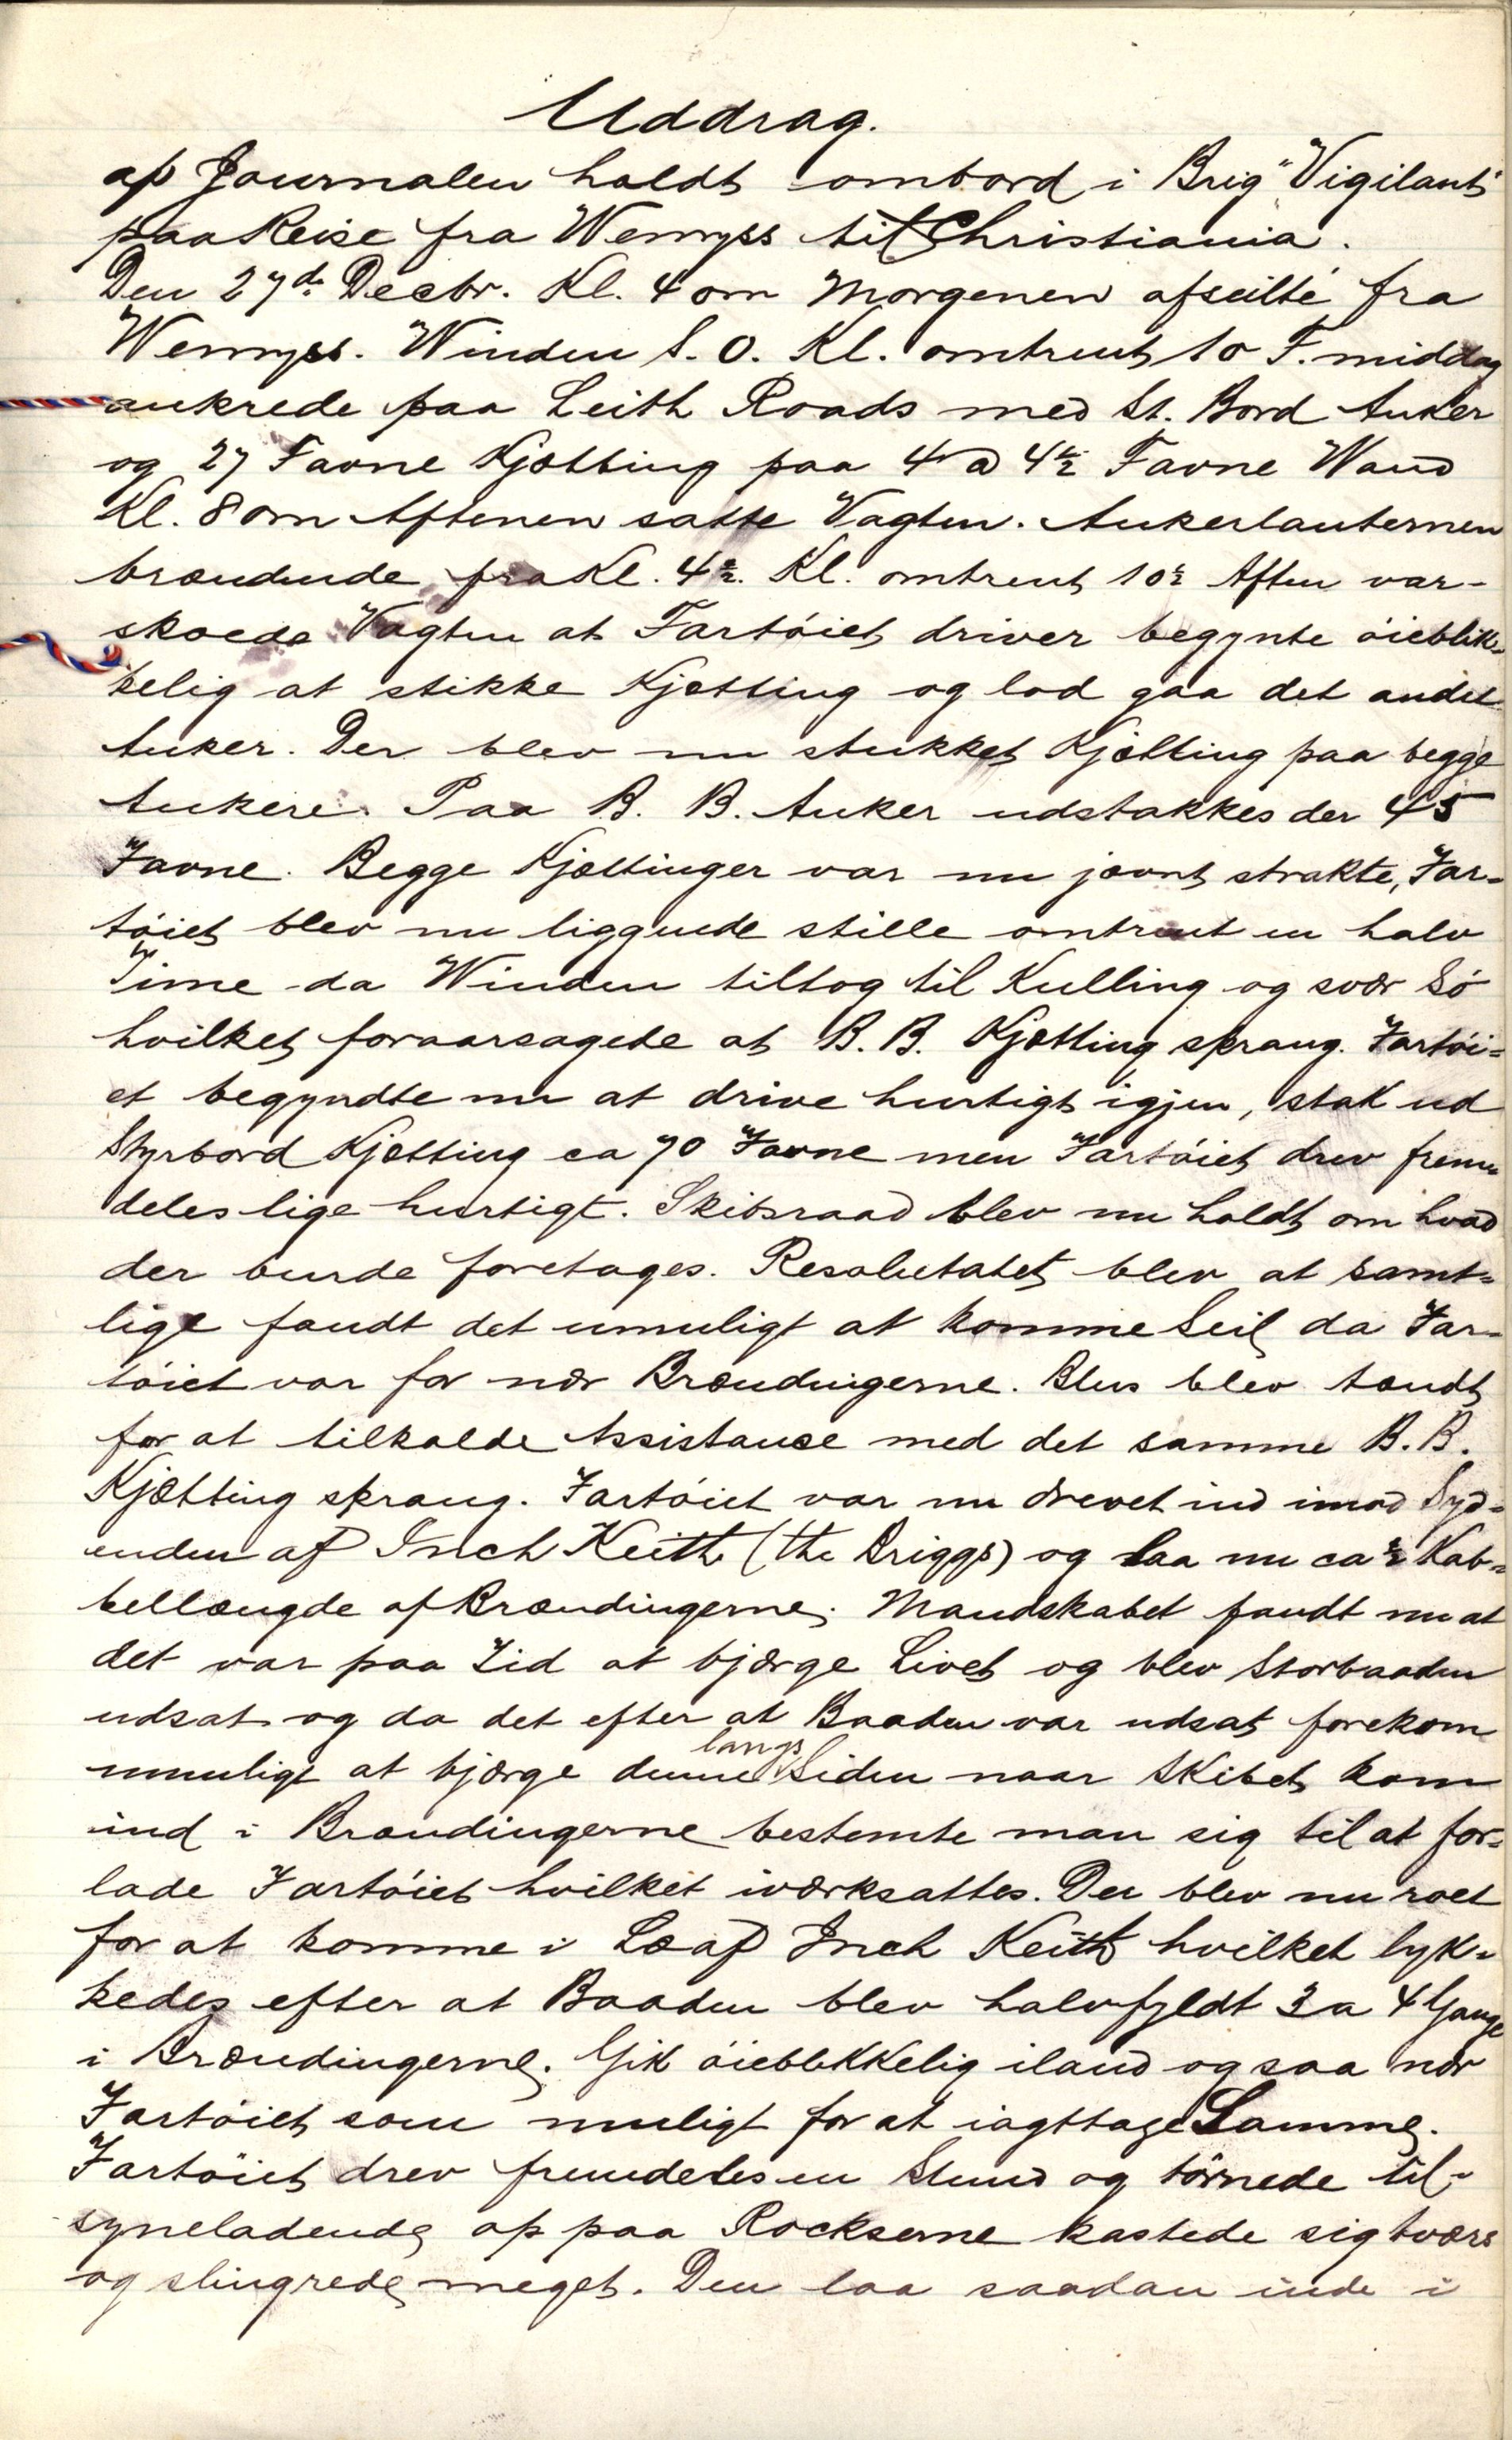 Uddrag.
af Journalen holdt ombord i Brig "Vigilant"
paa Reise fra Wemyss til Christiania.
Den 27de Decbr. Kl. 4 om Morgenen afseilte fra
Wemyss. Winden S.O. Kl. omtrent 10 F. middag
ankrede paa Leith Roads med St. Bord Anker
og 27 Favne Kjætting paa 4 a 4½ Favne Wand
Kl. 8 om Aftenen satte Vagten. Ankerlanternen
brændende fra Kl. 4½. Kl. omtrent 10½ Aften var-
skoede Vagten at Fartöiet driver begynte öieblik-
kelig at stikke Kjætting og lod gaa det andet
Anker. Der blev nu stukket Kjætting paa begge
Ankere. Paa B. B. Anker udstakkes der 45
Favne. Begge Kjættinger var nu jævnt strakte, Far-
töiet blev nu liggende stille omtrent en halv
Time da Winden tiltog til Kulling og svær Sö
hvilket foraarsagede at B. B. Kjætting sprang. Fartöi-
et begyndte nu at drive hurtigt igjen, stak ud
Styrbord Kjætting ca 70 Favne men Fartöiet drev frem-
deles lige hurtigt. Skibsraad blev nu holdt om hvad
der burde foretages. Resolutatet blev at samt-
lige fandt det umuligt at komme Seil da Far-
töiet var for nær Brændingerne. Blus blev tændt
for at tilkalde Assistance med det samme B. B.
Kjætting sprang. Fartöiet var nu drevet ind imod Syd-
enden af Inch Keith (the Briggs) og laa nu ca ½ Kab-
bellængde af Brændingerne. Mandskabet fandt nu at
det var paa Tid at bjærge Livet og blev Storbaaden
udsat og da det efter at Baaden var udsat forekom
umuligt at bjærge denne langs Siden naar Skibet kom
ind i Brændingerne bestemte man sig til at for-
lade Fartöiet hvilket iværksattes. Der blev nu roet
for at komme i Læ af Inch Keith hvilket lyk-
kedes efter at Baaden blev halvfyldt 3 a 4 Gange
i Brændingerne. Gik öieblikkelig iland og saa nær
Fartöiet som muligt for at iagttage Samme.
Fartöiet drev fremdeles en Stund og törnede til-
syneladende op paa Rockserne kastede sig tværs
og slingrede meget. Den laa saadan inde i